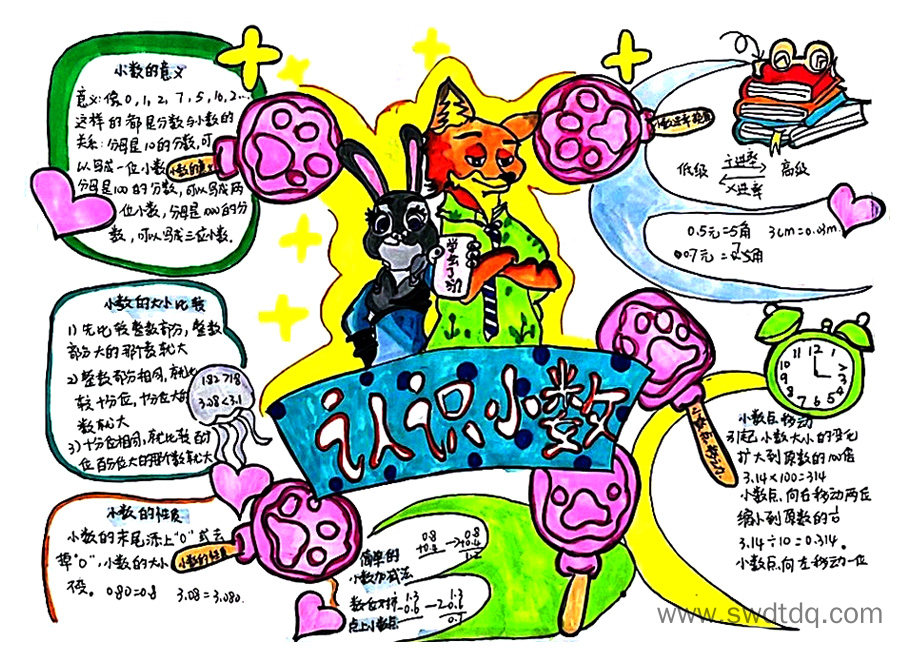 小数的意义
意义:像,0,1,2,7,5,16,2...
这样的都是分数与小数的
关系:分母是10的分数,可
以写成一位小数
分母是100的分数,可以写成两
位小数,分母是1000的分
数,可以写成三位小数.
低级 高级
进率
0.5元=5角 3cm=0.03m
学会了
吗?
小数的大小比较
1)先比较整数部分,整数
部分大的那个数就大
2)整数部分相同,就比
较十分位,十分位大的
数就大
3)十分位相同,就比较百分
位百分位大的那个数就大
182>718
3.08<3.1
认识小数
11 12 1
10 2
9 3
8 4
7 6 5
小数点移动
小数点移动
引起小数大小的变化
扩大到原数的100倍
3.14×100=314
小数点,向右移动两位
缩小到原数的
3.14÷10=0.314。
小数点,向左移动一位
小数的性质
小数的末尾添上"0"或去
掉"0",小数的大小
不变。 0.80=0.8 3.08=3.080.
小数的性质
简单的
小数加减法
0.8 0.8
+0.6
数位对齐 1.3 1.3
点上小数点 -0.6
www.swdtdq.com